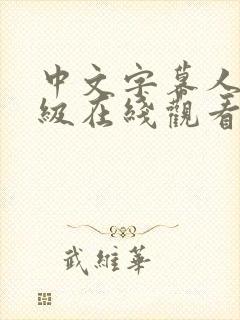 中文字幕人
級在綫觀看
武維華